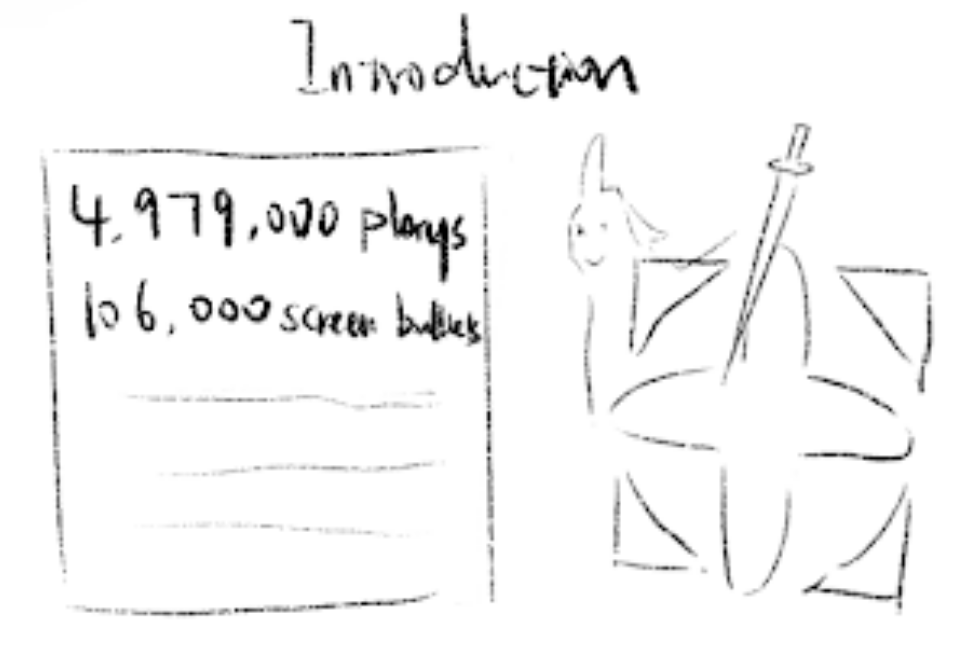 Introduction
4,979,000 plays
106,000 screen bullets